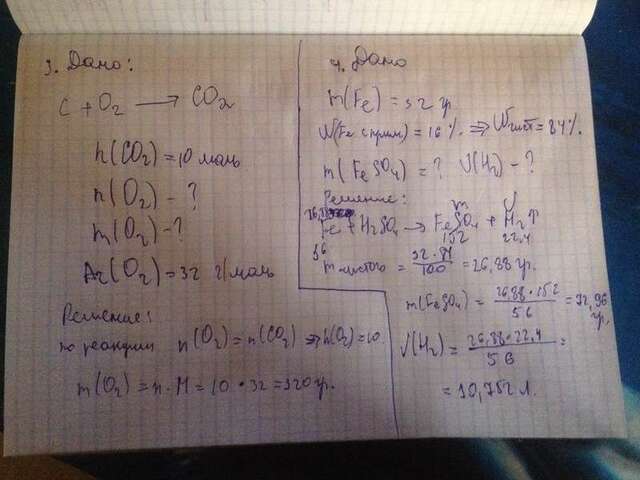 3. Дано:
C + O₂ → CO₂
n(CO₂) = 10 моль
n(O₂) - ?
m(O₂) - ?
Ar(O₂) = 32 г/моль
Решение:
по реакции n(O₂) = n(CO₂) ⇒ n(O₂) = 10.
m(O₂) = n · M = 10 · 32 = 320 гр.
4. Дано
m(Fe) = 32 гр
W(Fe с прим) = 16% ⇒ W = 84%.
m(FeSO₄) = ? V(H₂) - ?
Решение:
26,88 xm
Fe + H₂SO₄ → FeSO₄ + H₂↑
56 152 22,4
m чистого = 32·84/100 = 26,88 гр.
m(FeSO₄) = 26,88·152/56 = 72,96 гр.
V(H₂) = 26,88·22,4/56 =
= 10,752 л